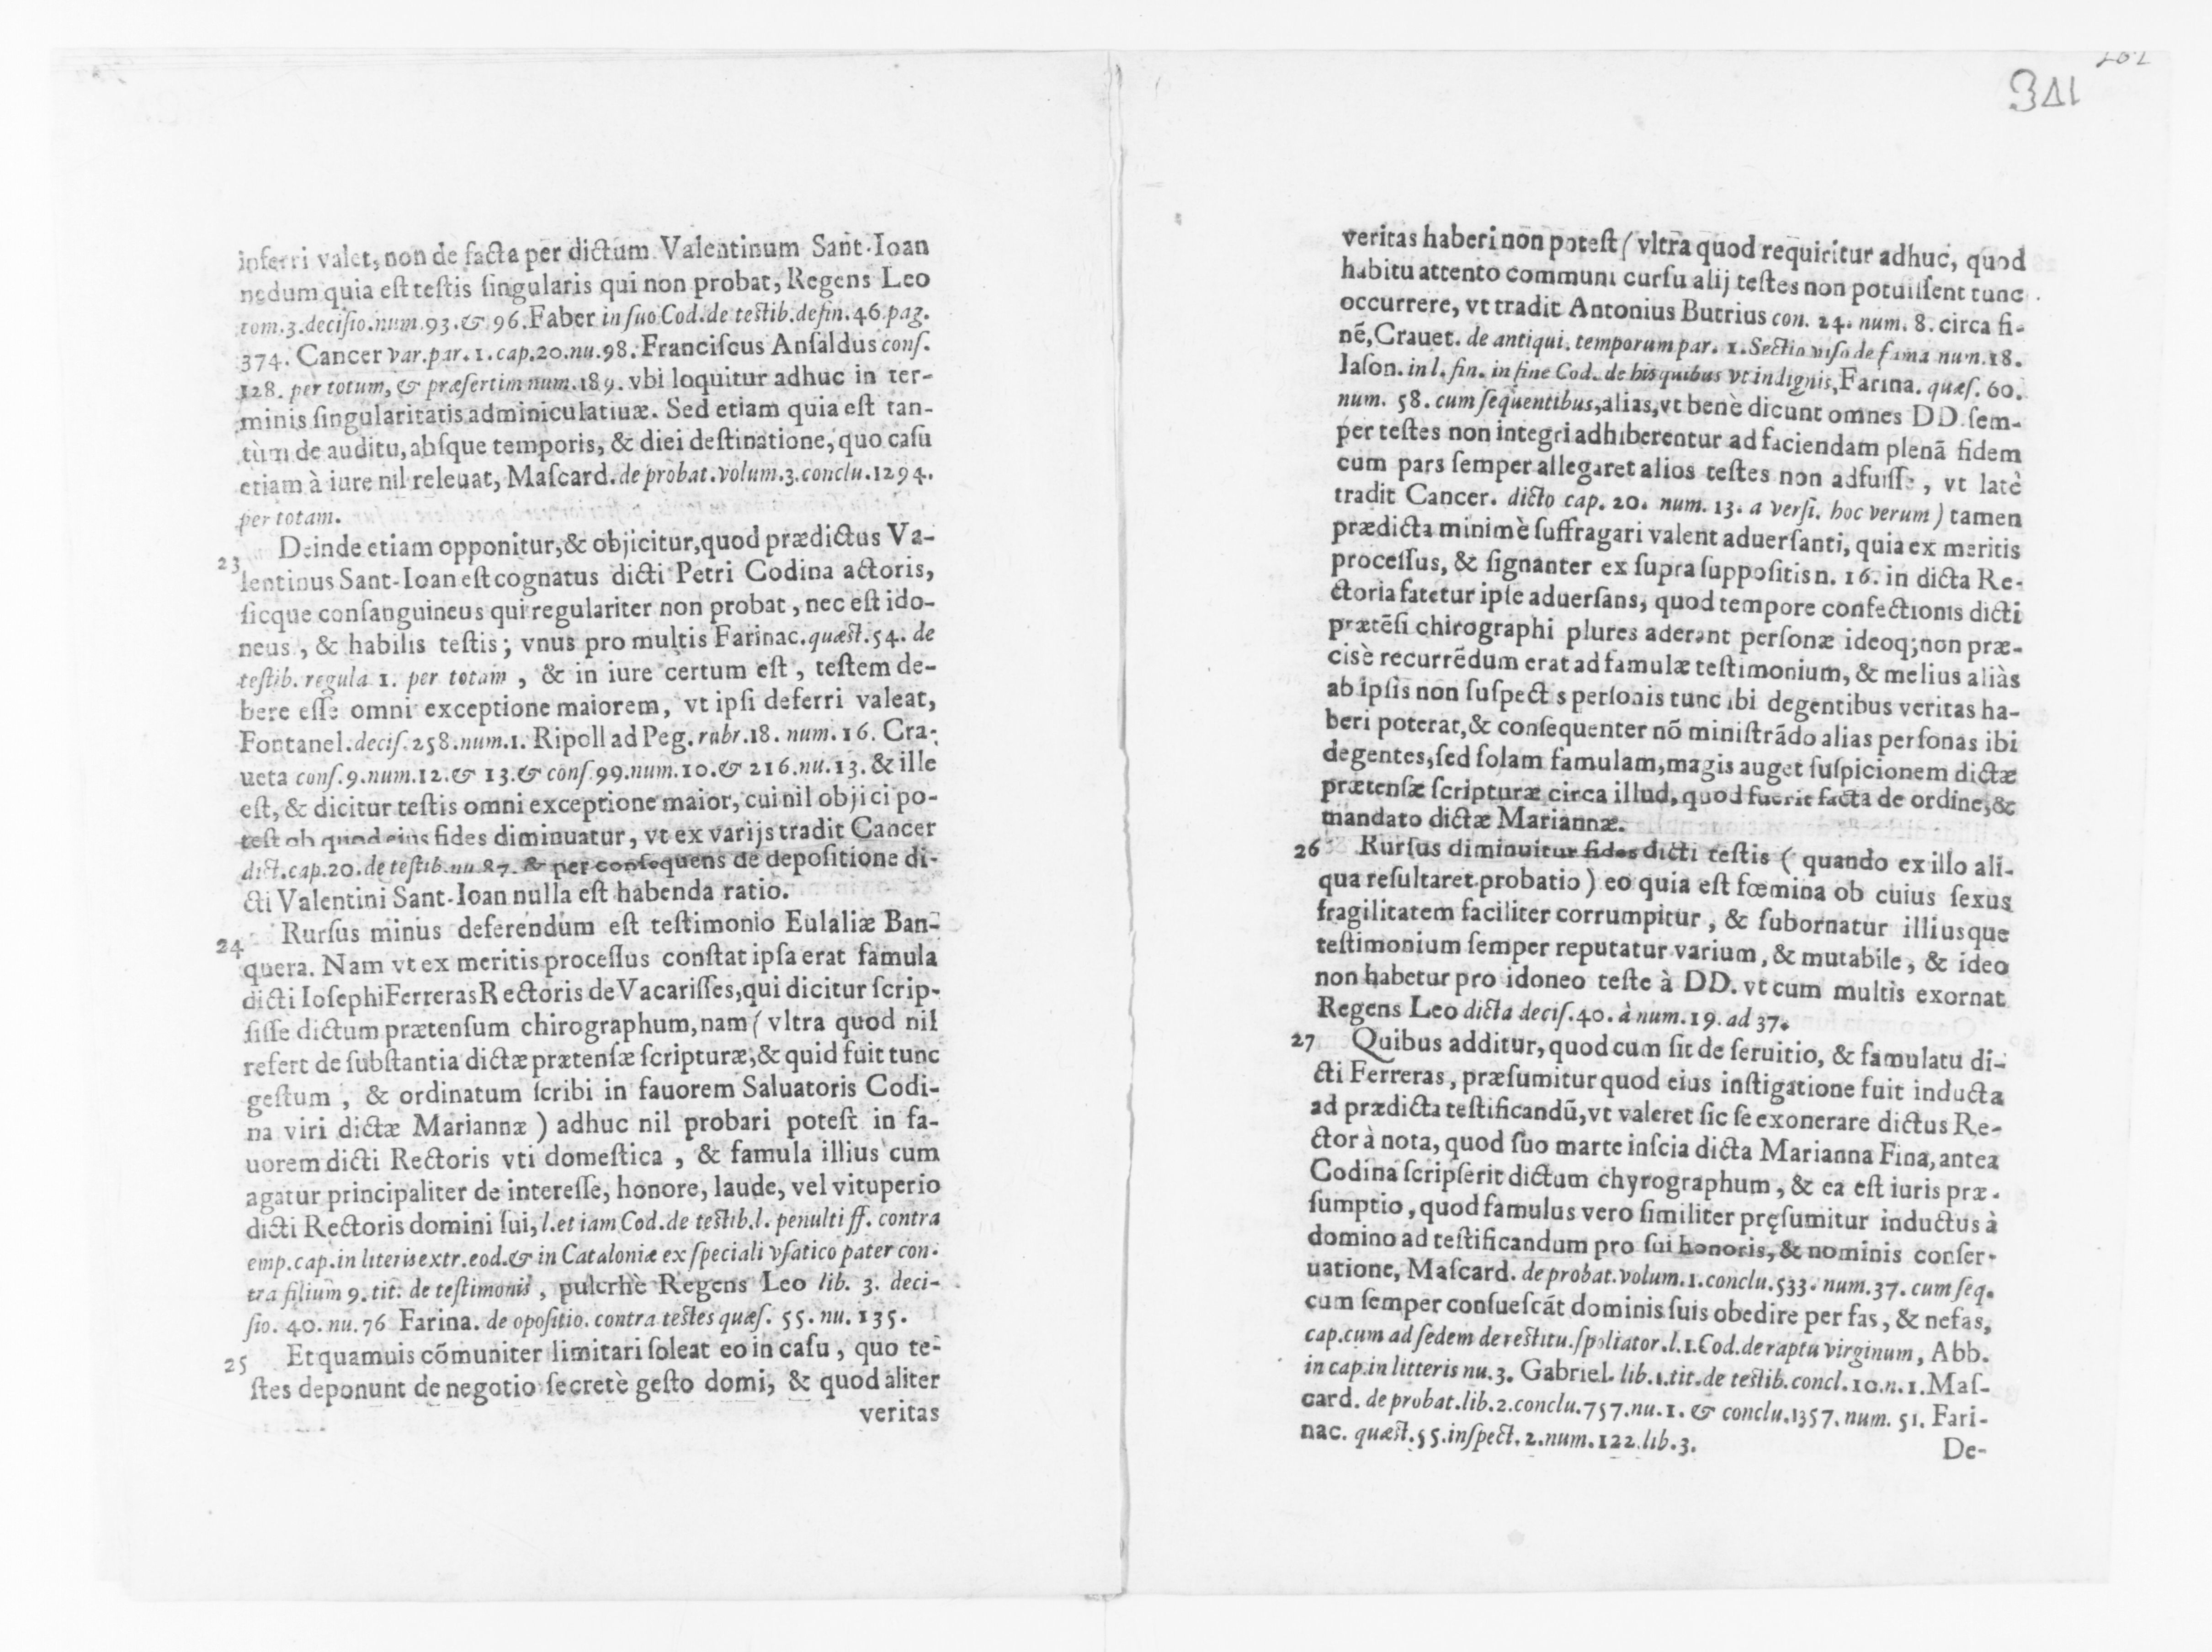 inferri valet, non de facta per dictum Valentinum Sant-Ioan
nedum quia est testis singularis qui non probat, Regens Leo
tom.3.decisio.num.93.& 96.Faber in suo Cod.de testib.defin.46.pag.
374. Cancer var.par.1.cap.20.nu.98.Franciscus Ansaldus cons.
128. per totum, & præsertim num.189. vbi loquitur adhuc in ter-
minis singularitatis adminiculatiuæ. Sed etiam quia est tan-
tùm de auditu, absque temporis, & diei destinatione, quo casu
etiam à iure nil releuat, Mascard.de probat.volum.3.conclu.1294.
per totam.
23 Deinde etiam opponitur,& objicitur,quod prædictus Va-
lentinus Sant-Ioan est cognatus dicti Petri Codina actoris,
sicque consanguineus qui regulariter non probat, nec est ido-
neus, & habilis testis; vnus pro multis Farinac.quæst.54. de
testib. regula 1. per totam, & in iure certum est, testem de-
bere esse omni exceptione maiorem, vt ipsi deferri valeat,
Fontanel.decis.258.num.1. Ripoll ad Peg.rubr.18. num.16. Cra-
ueta cons.9.num.12.& 13.& cons.99.num.10.& 216.nu.13. & ille
est, & dicitur testis omni exceptione maior, cui nil objici po-
test ob quod eius fides diminuatur, vt ex varijs tradit Cancer
dict.cap.20.de testib.nu.87. & per consequens de depositione di-
cti Valentini Sant-Ioan nulla est habenda ratio.
24 Rursus minus deferendum est testimonio Eulaliæ Ban-
quera. Nam vt ex meritis processus constat ipsa erat famula
dicti Iosephi Ferreras Rectoris de Vacarisses,qui dicitur scrip-
sisse dictum prætensum chirographum,nam (vltra quod nil
refert de substantia dictæ prætensæ scripturæ,& quid fuit tunc
gestum, & ordinatum scribi in fauorem Saluatoris Codi-
na viri dictæ Mariannæ) adhuc nil probari potest in fa-
uorem dicti Rectoris vti domestica, & famula illius cum
agatur principaliter de interesse, honore, laude, vel vituperio
dicti Rectoris domini sui, l.etiam Cod.de testib.l. penulti ff. contra
emp.cap.in literis extr.eod.& in Cataloniæ ex speciali vsatico pater con-
tra filium 9. tit. de testimonis, pulcrhè Regens Leo lib. 3. deci-
sio. 40. nu.76 Farina. de opositio. contra testes quæs. 55. nu. 135.
25 Et quamuis cõmuniter limitari soleat eo in casu, quo te-
stes deponunt de negotio secretè gesto domi, & quod aliter
veritas
veritas haberi non potest (vltra quod requiritur adhuc, quod
habitu attento communi cursu alij testes non potuissent tunc
occurrere, vt tradit Antonius Butrius con. 24. num. 8. circa fi-
nẽ, Crauet. de antiqui. temporum par. 1. Sectio viso de fama num.18.
Iason. in l. fin. in fine Cod. de his quibus vt indignis, Farina. quæs. 60.
num. 58. cum sequentibus,alias,vt benè dicunt omnes DD. sem-
per testes non integri adhiberentur ad faciendam plenã fidem
cum pars semper allegaret alios testes non adfuisse, vt latè
tradit Cancer. dicto cap. 20. num. 13. a versi. hoc verum) tamen
prædicta minimè suffragari valent aduersanti, quia ex meritis
processus, & signanter ex supra suppositis n. 16. in dicta Re-
ctoria fatetur ipse aduersans, quod tempore confectionis dicti
prætẽsi chirographi plures aderant personæ ideoq; non præ-
cisè recurrẽdum erat ad famulæ testimonium, & melius aliàs
ab ipsis non suspectis personis tunc ibi degentibus veritas ha-
beri poterat,& consequenter nõ ministrãdo alias personas ibi
degentes,sed solam famulam,magis auget suspicionem dictæ
prætensæ scripturæ circa illud, quod fuerit facta de ordine,&
mandato dictæ Mariannæ.
26 Rursus diminuitur fides dicti testis (quando ex illo ali-
qua resultaret probatio) eo quia est fœmina ob cuius sexus
fragilitatem faciliter corrumpitur, & subornatur illiusque
testimonium semper reputatur varium, & mutabile, & ideo
non habetur pro idoneo teste à DD. vt cum multis exornat
Regens Leo dicta decis.40. à num.19. ad 37.
27 Quibus additur, quod cum sit de seruitio, & famulatu di-
cti Ferreras, præsumitur quod eius instigatione fuit inducta
ad prædicta testificandũ,vt valeret sic se exonerare dictus Re-
ctor à nota, quod suo marte inscia dicta Marianna Fina, antea
Codina scripserit dictum chyrographum, & ea est iuris præ-
sumptio, quod famulus vero similiter pręsumitur inductus à
domino ad testificandum pro sui honoris, & nominis conser-
uatione, Mascard. de probat.volum.1.conclu.533. num.37. cum seq.
cum semper consuescãt dominis suis obedire per fas, & nefas,
cap.cum ad sedem de restitu.spoliator.l.1.Cod.de raptu virginum, Abb.
in cap.in litteris nu.3. Gabriel. lib.1.tit.de testib.concl.10.n.1.Mas-
card. de probat.lib.2.conclu.757.nu.1. & conclu.1357.num. 51. Fari-
nac. quæst.55.inspect.2.num.122.lib.3.
De-